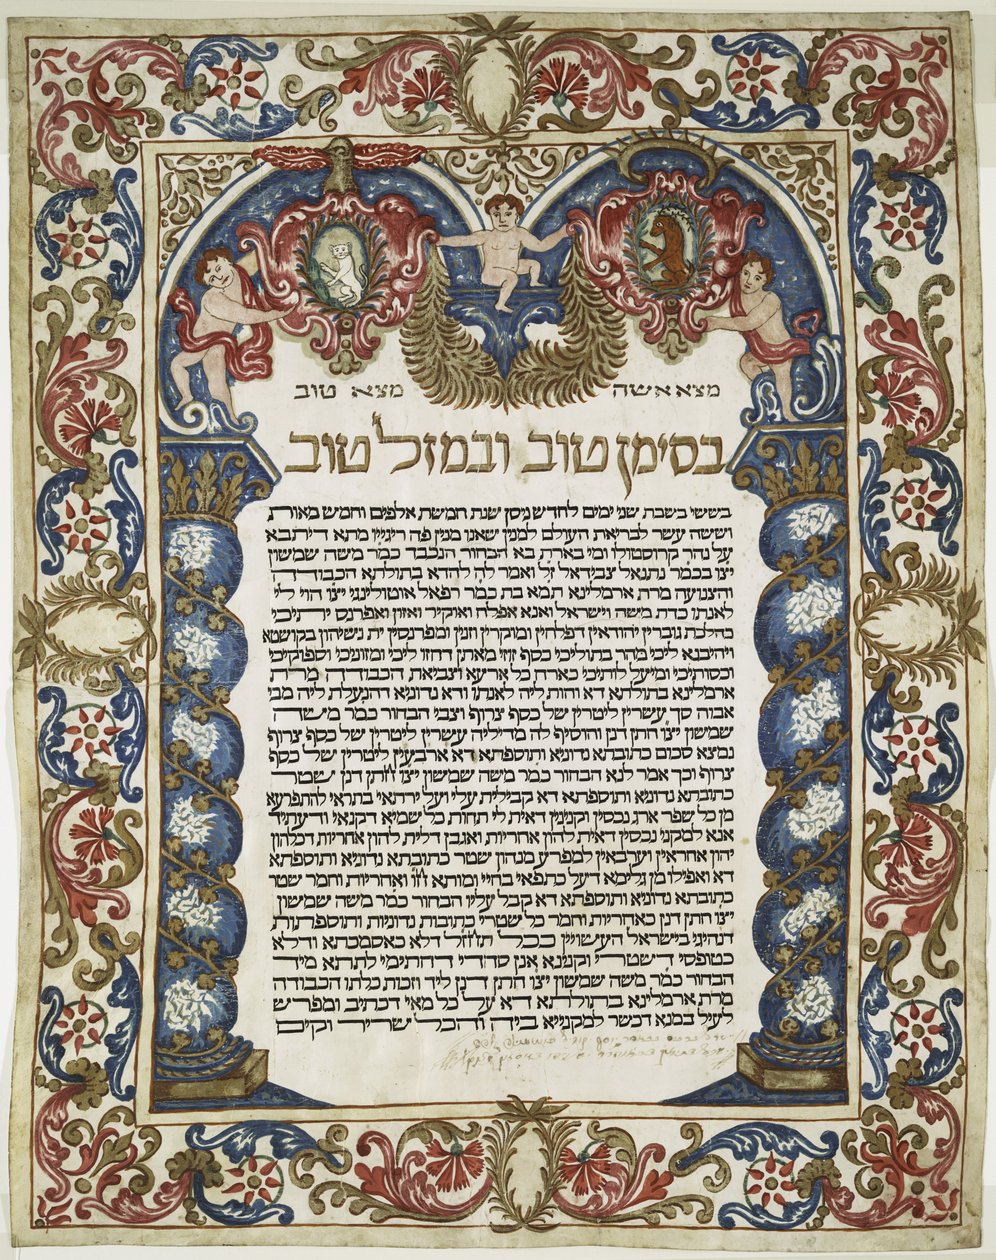 מצא אשה מצא טוב
בסימן טוב ובמזל טוב
בששי בשבת שני ימים לחדש ניסן שנת חמשת אלפים וחמש מאות
וששה עשר לבריאת העולם למנין שאנו מנין פה ריגייו מתא דיתבא
על נהר קרוסטולו ומי בארת בא הבחור הנכבד כמר משה שמשון
יצו בכמר נתנאל צבידאל זל ואמר לה להדא בתולתא הכבודה
והצנועה מרת ארמלינא תמא בת כמר רפאל אוטולינגי יצו הוי לי
לאנתו כדת משה וישראל ואנא אפלח ואוקיר ואזון ואפרנס יתיכי
כהלכת גוברין יהודאין דפלחין ומוקרין וזנין ומפרנסין ית נשיהון בקושטא
ויהיבנא ליכי מהר בתוליכי כסף זוזי מאתן דחזו ליכי ומזוניכי וספוקיכי
וכסותיכי ומיעל לותיכי כארח כל ארעא וצביאת הכבודה מרת
ארמלינא בתולתא דא והות ליה לאנתו ודא נדוניא דהנעלת ליה מבי
אבוה סך עשרין ליטרין של כסף צרוף וצבי הבחור כמר משה
שמשון יצו חתן דנן והוסיף לה מדיליה עשרין ליטרין של כסף צרוף
נמצא סכום כתובתא נדוניא ותוספתא דא ארבעין ליטרין של כסף
צרוף וכך אמר לנא הבחור כמר משה שמשון יצו חתן דנן שטר
כתובתא נדוניא ותוספתא דא קבילית עלי ועל ירתאי בתראי להתפרעא
מן כל שפר ארג נכסין וקנינין דאית לי תחות כל שמיא דקנאי ודעתיד
אנא למקני נכסין דאית להון אחריות ואגבן דלית להון אחריות דכלהון
יהון אחראין וערבאין למפרע מנהון שטר כתובתא נדוניא ותוספתא
דא ואפילו מן גלימא דעל כתפאי בחיי ומותא חו ואחריות וחמר שטר
כתובתא נדוניא ותוספתא דא קבל עליו הבחור כמר משה שמשון
יצו חתן דנן כאחריות וחמר כל שטרי כתובות נדוניות ותוספתות
דנהיגי בישראל העשויין ככל תוחזל דלא כאסמכתא ודלא
כטופסי דשטרי וקנינא אנן סהדי דחתימי לתתא מיד
הבחור כמר משה שמשון יצו חתן דנן ליד וזכות כלתו הכבודה
מרת ארמלינא בתולתא דא על כל מאי דכתיב ומפרש
לעיל במנא דכשר למקנייא ביה והכל שריר וקים